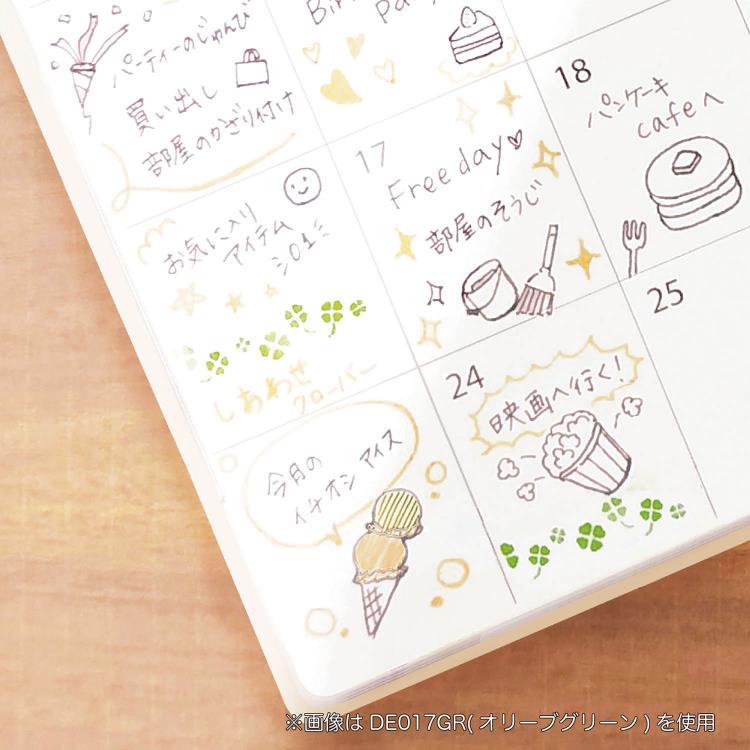 パーティーのじゅんび
買い出し
部屋のかざり付け
Bir
Par
お気に入り
アイテム
しあわせ
クローバー
今月の
イチオシ アイス
17
Free day
部屋のそうじ
18
パンケーキ
cafeへ
24
映画へ行く!
25
※画像は DE017GR( オリーブグリーン ) を使用